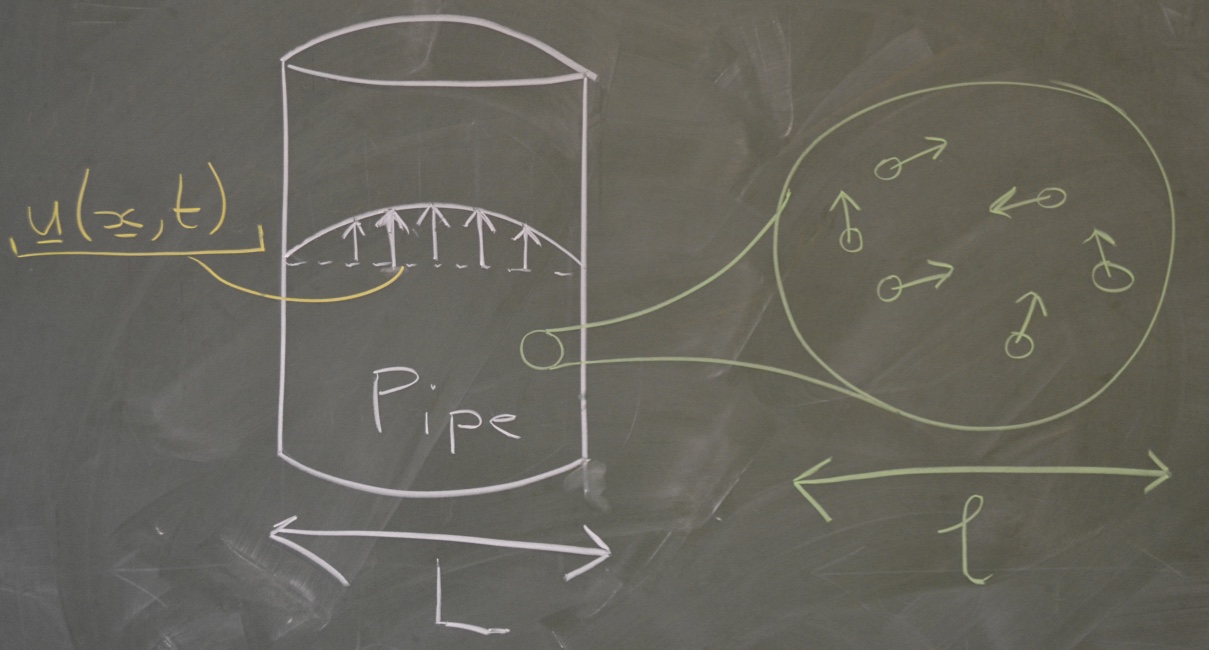 u(x,t)
Pipe
L
l